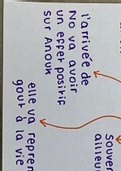 l'arrivée de
No va avoir
un effet positif
sur Anouk
elle va repren
gout à la vie
souven
ailleu